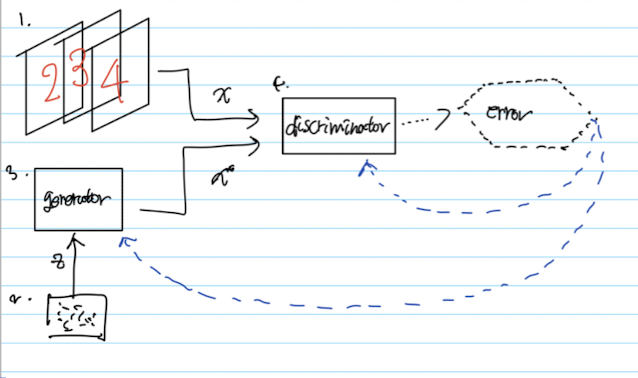 1.
2 3 4
x
discriminator
error
3.
generator
x*
z
2.